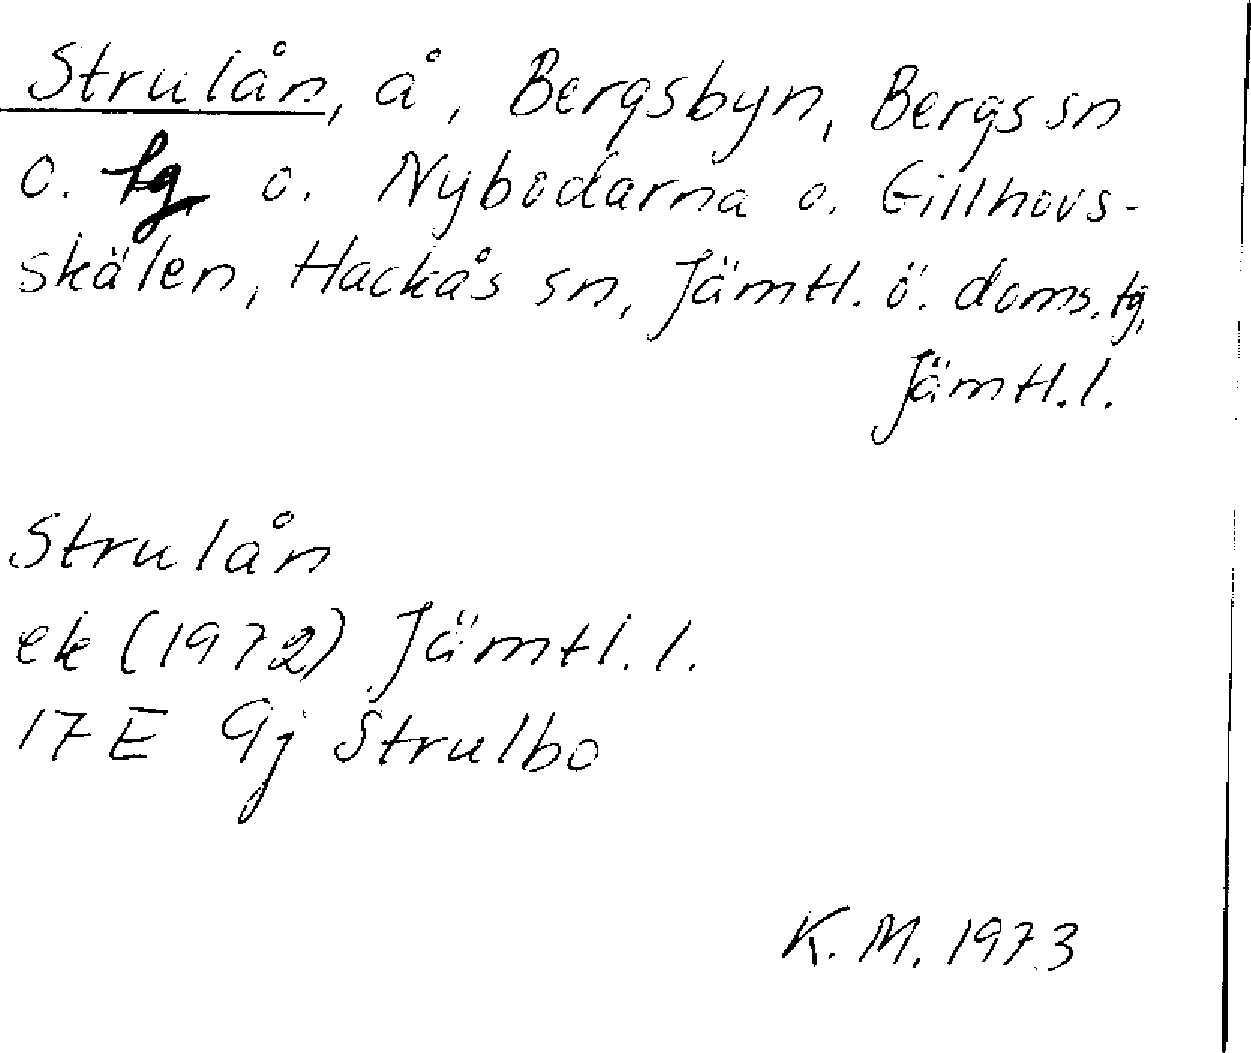 Strulån, å, Bergsbyn, Bergs sn
o. tg o. Nybodarna o. Gillhovs-
skälen, Hackås sn, Jämtl. ö. doms. tg,
Jämtl. l.
Strulån
ek (1972) Jämtl. l.
17 E 9j Strulbo
K. M. 1973